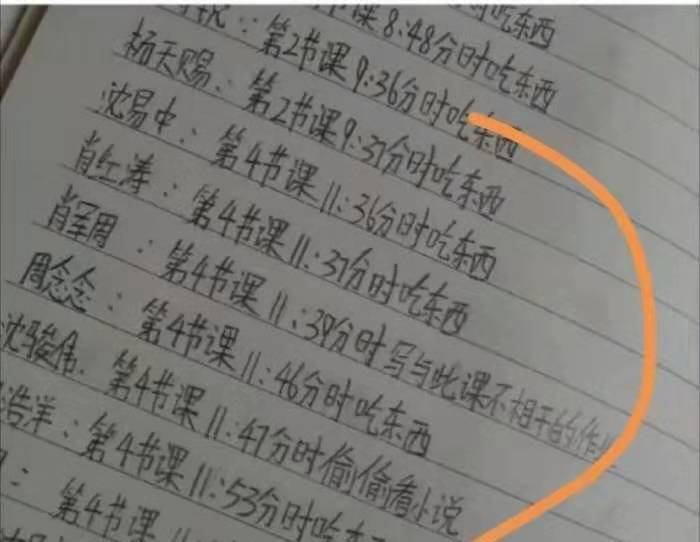 课8:48分时吃东西
：第2节课9:36分时吃东西
杨天赐：第2节课9:37分时吃东西
沈易中：第4节课11:36分时吃东西
肖红涛：第4节课11:37分时吃东西
肖军周：第4节课11:39分时写与此课不相干的作业
周念念：第4节课11:46分时吃东西
沈骏伟：第4节课11:47分时偷偷看小说
浩洋：第4节课11:53分时吃东
：第4节课11